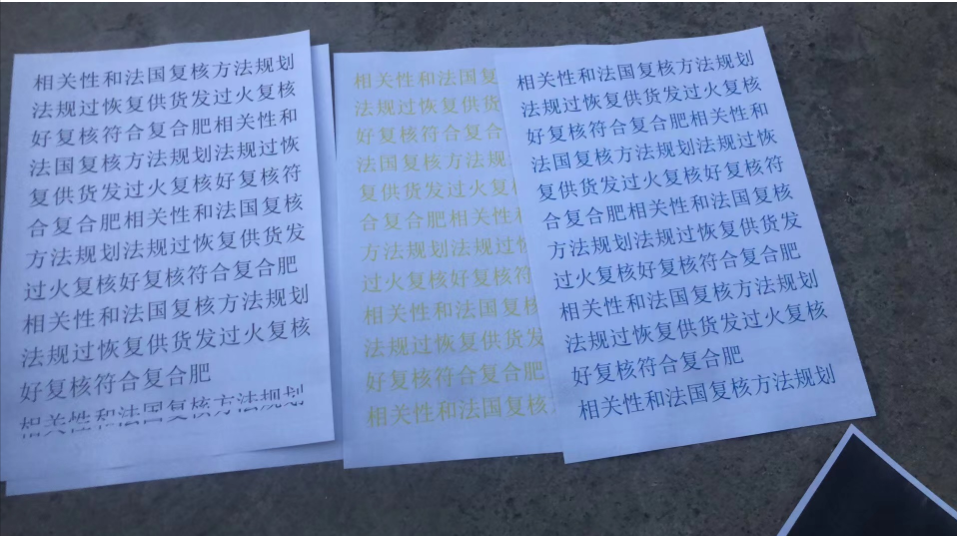 相关性和法国复核方法规划
法规过恢复供货发过火复核
好复核符合复合肥相关性和
法国复核方法规划法规过恢
复供货发过火复核好复核符
合复合肥相关性和法国复核
方法规划法规过恢复供货发
过火复核好复核符合复合肥
相关性和法国复核方法规划
法规过恢复供货发过火复核
好复核符合复合肥
相关性和法国复核方法规划
相关性和法国复
法规过恢复供货
好复核符合复合
法国复核方法规
复供货发过火复
合复合肥相关性
方法规划法规过
过火复核好复核符
相关性和法国复核
法规过恢复供货发
好复核符合复合肥
相关性和法国复核
相关性和法国复核方法规划
法规过恢复供货发过火复核
好复核符合复合肥相关性和
法国复核方法规划法规过恢
复供货发过火复核好复核符
合复合肥相关性和法国复核
方法规划法规过恢复供货发
过火复核好复核符合复合肥
相关性和法国复核方法规划
法规过恢复供货发过火复核
好复核符合复合肥
相关性和法国复核方法规划